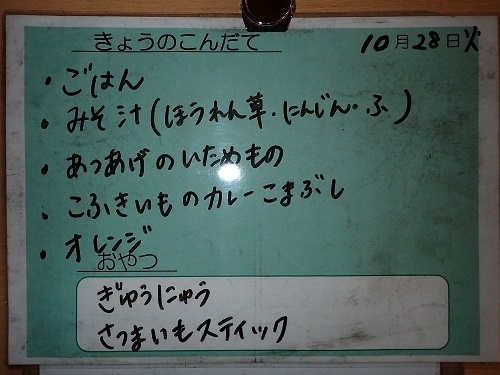 きょうのこんだて 10月28日火
・ごはん
・みそ汁(ほうれん草・にんじん・ふ)
・あつあげのいためもの
・こふきいものカレーこまぶし
・オレンジ
おやつ
ぎゅうにゅう
さつまいもスティック